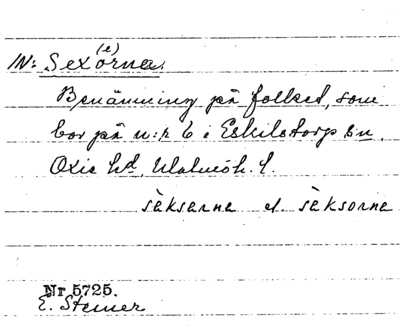 (e)
N: Sexorna.
Benämning på folket, som
bor på n:r 6 i Eskilstorp sn.
Oxie hd, Malmöh. l.
sèkserne el. sèksorne
Nr 5725.
E. Steiner